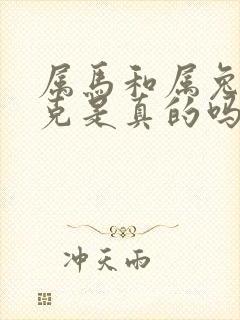 属马和属兔
克是真的吗
冲天雨